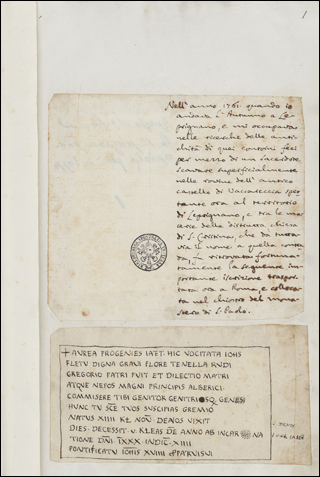 1
Nell' anno 1761. quando io
andava l'Autunno a Le-
prignano, e mi occupava
nelle ricerche delle anti-
chità di quei contorni feci
per mezzo di un sacerdote
scavare superficialmente
nelle rovine dell' antico
castello di
tante ora al territorio
di Leprignano, e tra le ma-
cerie della distrutta chiesa
di S. Cristina, che dà tutta-
via il nome a quella contra-
da, fu ritrovata fortuna-
tamente la seguente im-
portante iscrizione traspor-
tata ora a Roma, e colloca-
ta nel chiostro del mona-
stero di S. Paolo.
+ AUREA PROGENIES IACET HIC VOCITATA IOHIS
FLETU DIGNA GRAVI FLORE TENELLA RUDI
GREGORIO PATRI FUIT ET DILECTIO MATRI
ATQUE NEPOS MAGNI PRINCIPIS ALBERICI
COMMISERE TIBI GENITOR GENITRI SQ GENESI
HUNC TU SCE TUOS SUSCIPIAS GREMIO
NATUS XIIII KL NOV DENOS VIXIT
DIES DECESSIT V KLEAS DE ANNO AB INCAR NA
TIONE DNI DCCCC INDIC XIIII
PONTIFICATU IOHIS XVIIII PARVISUI